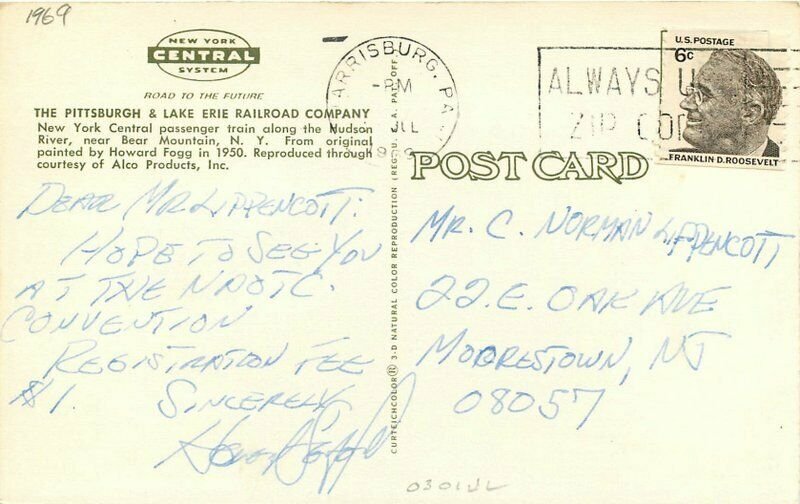 1969
NEW YORK
CENTRAL
SYSTEM
ROAD TO THE FUTURE
THE PITTSBURGH & LAKE ERIE RAILROAD COMPANY
New York Central passenger train along the Hudson
River, near Bear Mountain, N. Y. From original
painted by Howard Fogg in 1950. Reproduced through
courtesy of Alco Products, Inc.
DEAR MR. LIPPENCOTT:
HOPE TO SEE YOU
AT THE NAOTC
CONVENTION
REGISTRATION FEE
$1 SINCERELY,
CURTEICHCOLOR® 3-D NATURAL COLOR REPRODUCTION (REG. U.S.A. PAT. OFF.)
ARRISBURG, PA
PM
JUL
ALWAYS U
ZIP COD
U.S. POSTAGE
6c
FRANKLIN D. ROOSEVELT
POST CARD
MR. C. NORMAN LIPPENCOTT
22 E. OAK AVE
MOORESTOWN, NJ
08057
0301JL